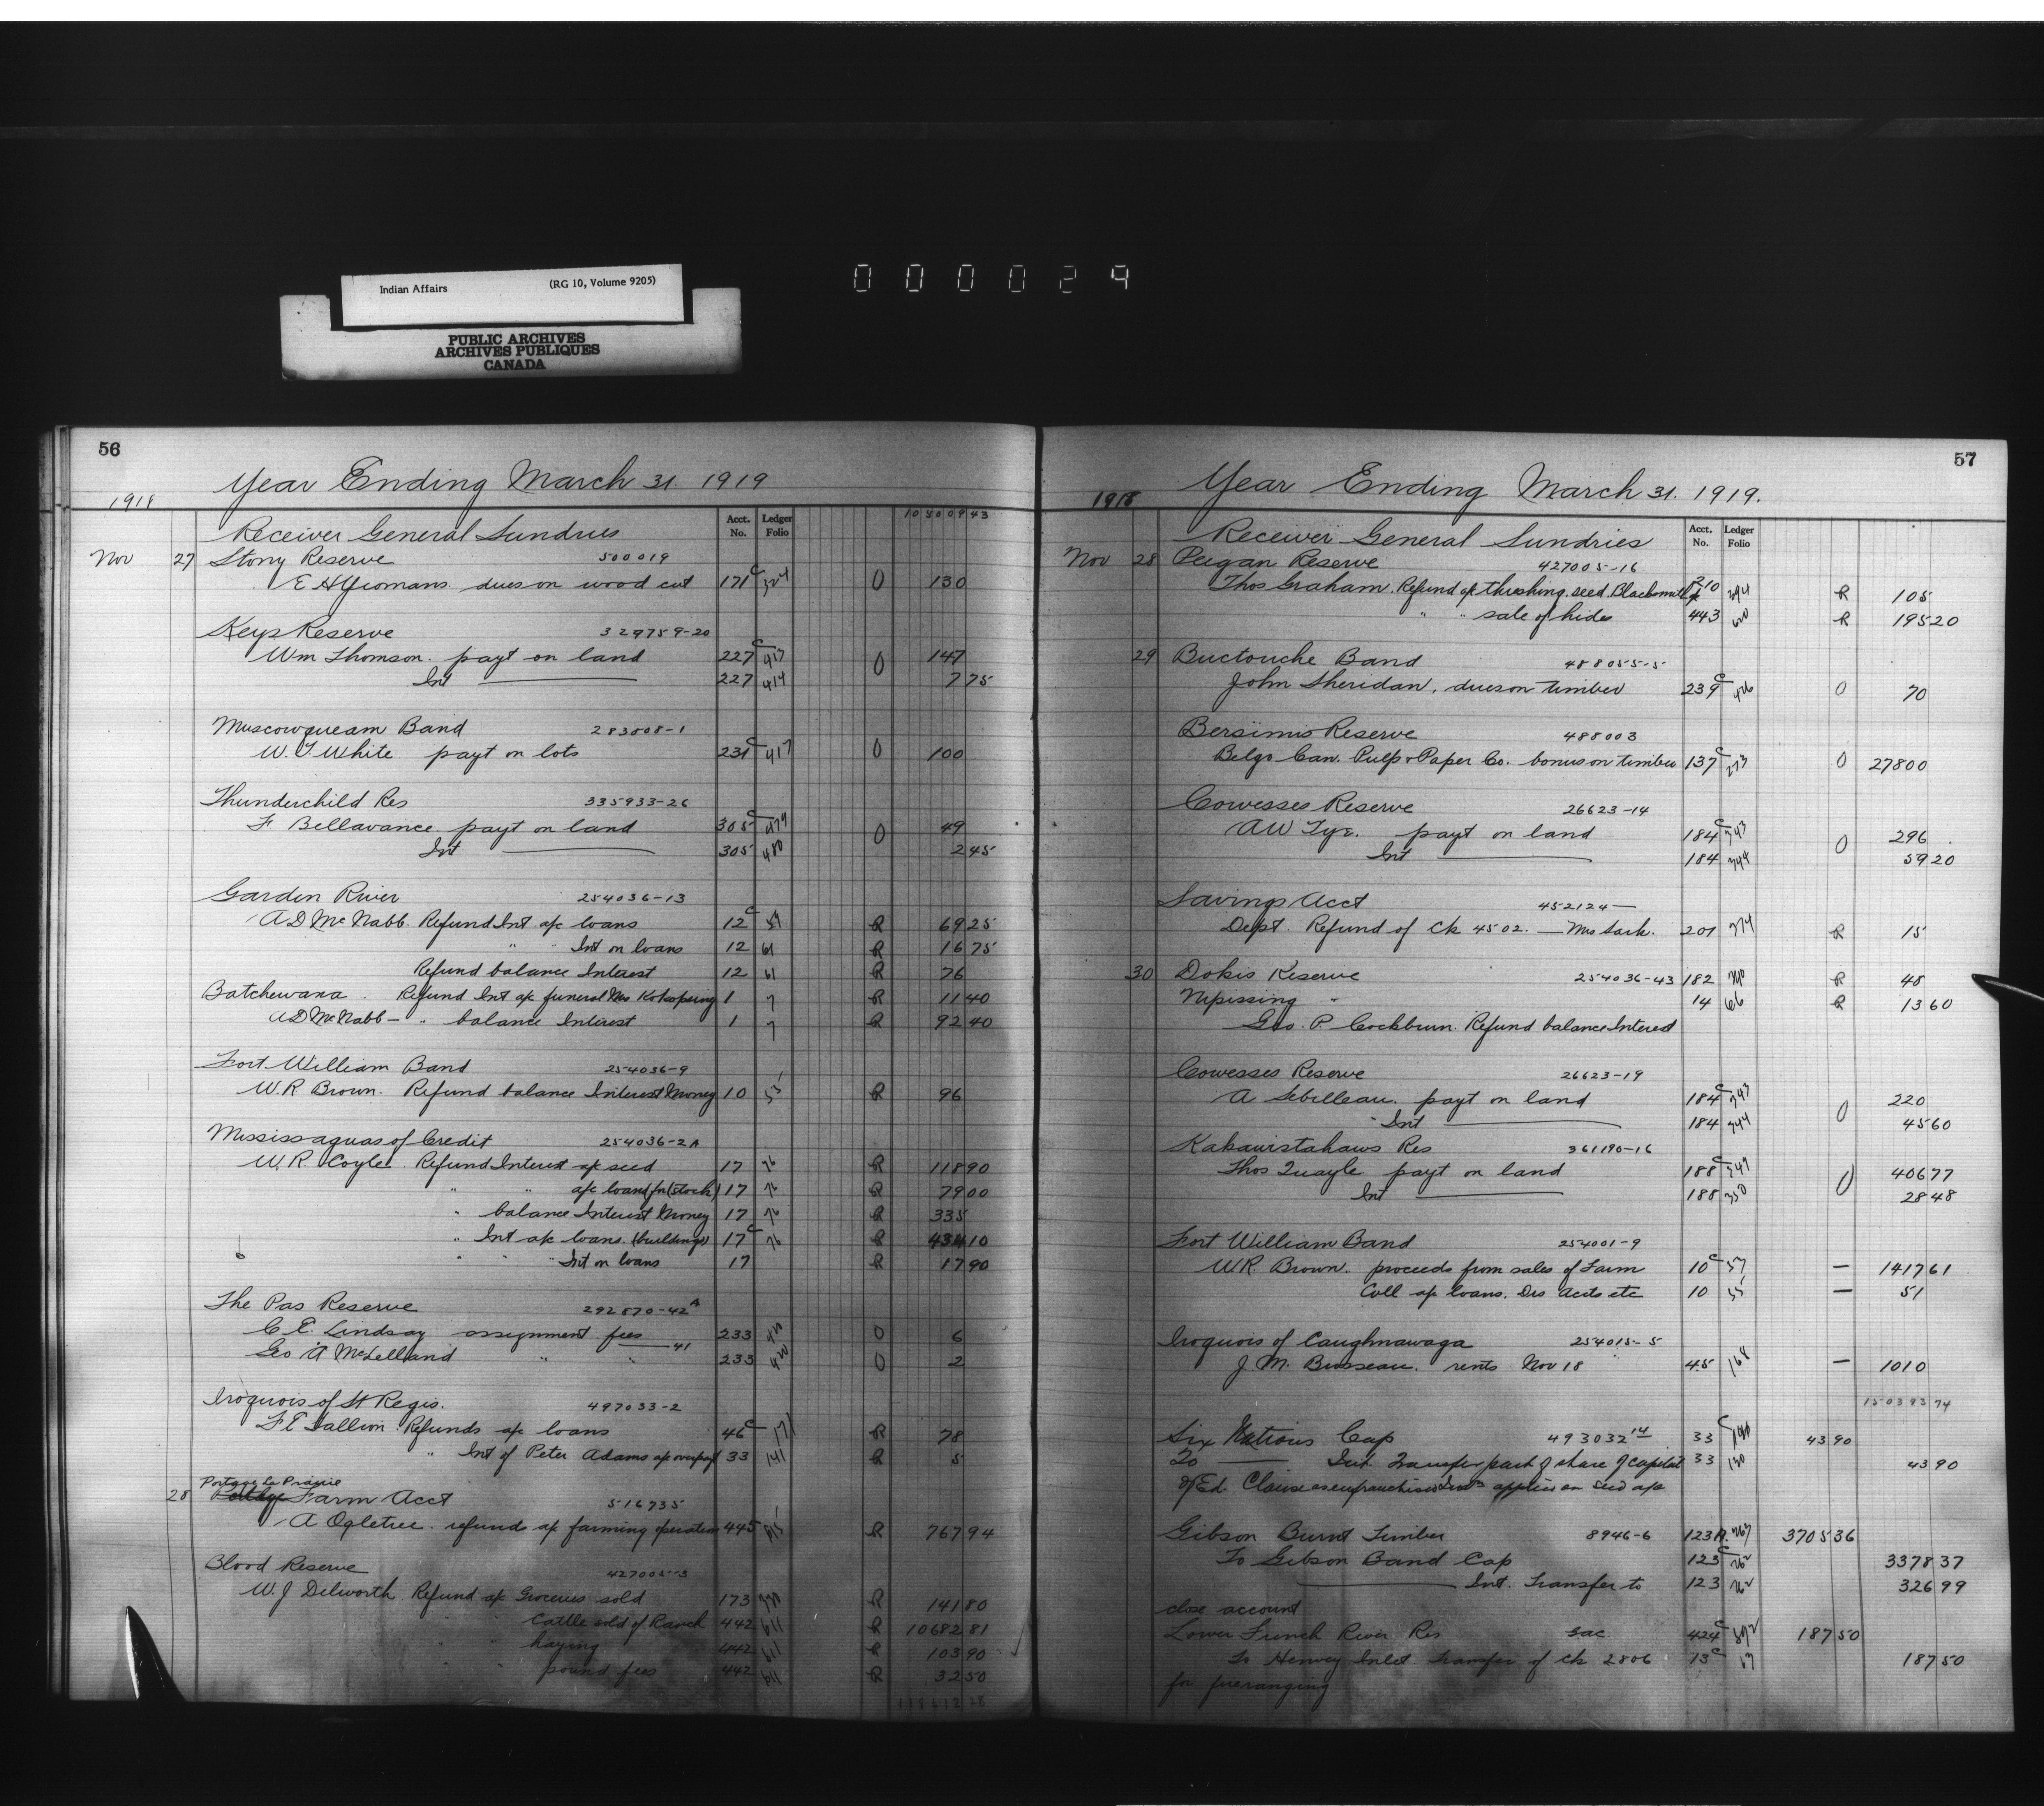 Indian Affairs (RG 10, Volume 9205)
PUBLIC ARCHIVES
ARCHIVES PUBLIQUES
CANADA
000024
56
Year Ending March 31. 1919
1918
Acct. No. Ledger Folio 10500943
Receiver General Sundries
Nov 27 Stony Reserve 500019
E H Yeomans dues on wood cut 171 c 324 O 130
Keys Reserve 329759-20
Wm Thomson. payt on land 227 c 413 O 147
Int 227 414 7 75
Muscowqueam Band 283508-1
W. T White payt on lots 231 c 417 O 100
Thunderchild Res 335933-26
F Bellavance payt on land 305 c 479 O 49
Int 305 480 2 45
Garden River 254036-13
A D McNabb. Refund Int a/c loans 12 c 59 R 69 25
" " Int on loans 12 61 R 16 75
Refund balance Interest 12 61 R 76
Batchewana. Refund Int a/c funeral Mrs 1 7 R 11 40
A D McNabb - " balance Interest 1 7 R 92 40
Fort William Band 254036-9
W. R Brown. Refund balance Interest Money 10 55 R 96
Mississaguas of Credit 254036-2A
W. R. Coyle Refund Interest a/c seed 17 76 R 118 90
" " a/c loans for (stock) 17 76 R 79 00
" balance Interest Money 17 76 R 335
" Int a/c loans. (buildings) 17 c 76 R 434 10
" " " Int on loans 17 R 17 90
The Pas Reserve 292870-42A
C. E. Lindsay assignment fees 233 420 O 6
Geo A McLelland " " 41 233 420 O 2
Iroquois of St Regis. 497033-2
F E Tallion Refunds a/c loans 46 c 171 R 78
" Int of Peter Adams a/c overpayt 33 141 R 5
Portage La Prairie
28 Farm Acct 516735
A Ogletree. refunds a/c farming operations 445 615 R 767 94
Blood Reserve 427005-3
W. J Dilworth Refund a/c Groceries sold 173 330 R 141 80
" " Cattle sold of Ranch 442 611 R 10682 81
" " haying 442 611 R 103 90
" " pound fees 442 611 R 32 50
118612 28
57
Year Ending March 31. 1919.
1918
Acct. No. Ledger Folio
Receiver General Sundries
Nov 28 Peigan Reserve 427005-16
Thos Graham. Refund a/c threshing. seed. Blacksmith 210 394 R 105
" " sale of hides 443 R 195 20
29 Buctouche Band 488055-5
John Sheridan, dues on timber 239 c 426 O 70
Bersimis Reserve 488003
Belgo Can. Pulp & Paper Co. bonus on timber 137 c 273 O 278 00
Cowesses Reserve 26623-14
A W Tye. payt on land 184 c 343 O 296
Int 184 344 59 20
Savings Acct 452124 —
Dept. Refund of Ck 4502. — Mrs Sark. 201 374 R 15
30 Dokis Reserve 254036-43 182 340 R 48
Nipissing " 14 66 R 13 60
Geo. P. Cockburn. Refund balance Interest
Cowesses Reserve 26623-19
A Sebilleau. payt on land 184 c 343 O 220
Int 184 344 45 60
Kakawistahaws Res 361190-16
Thos Quayle payt on land 188 c 349 O 406 77
Int 188 350 28 48
Fort William Band 254001-9
W R. Brown. proceeds from sales of Farm 10 c 57 — 1417 61
Coll a/c loans. Drs Accts etc 10 55 — 51
Iroquois of Caughnawaga 254015-5
J. M. Brosseau. rents Nov 18 45 168 — 10 10
150393 74
Six Nations Cap 493032 14 33 c 140 43 90
To — Int. Transfer part of share of capital 33 43 90
of Ed. Clause as enfranchised Ind applied on Seed a/c
Gibson Burnt Timber 8946-6 123A. 263 3705 36
To Gibson Band Cap 123 c 262 3378 37
— Int. Transfer to 123 262 326 99
close account
Lower French River Res 424 c 592 187 50
To Henvey Inlet Transfer of Ck 2806 13 c 63 187 50
for fireranging